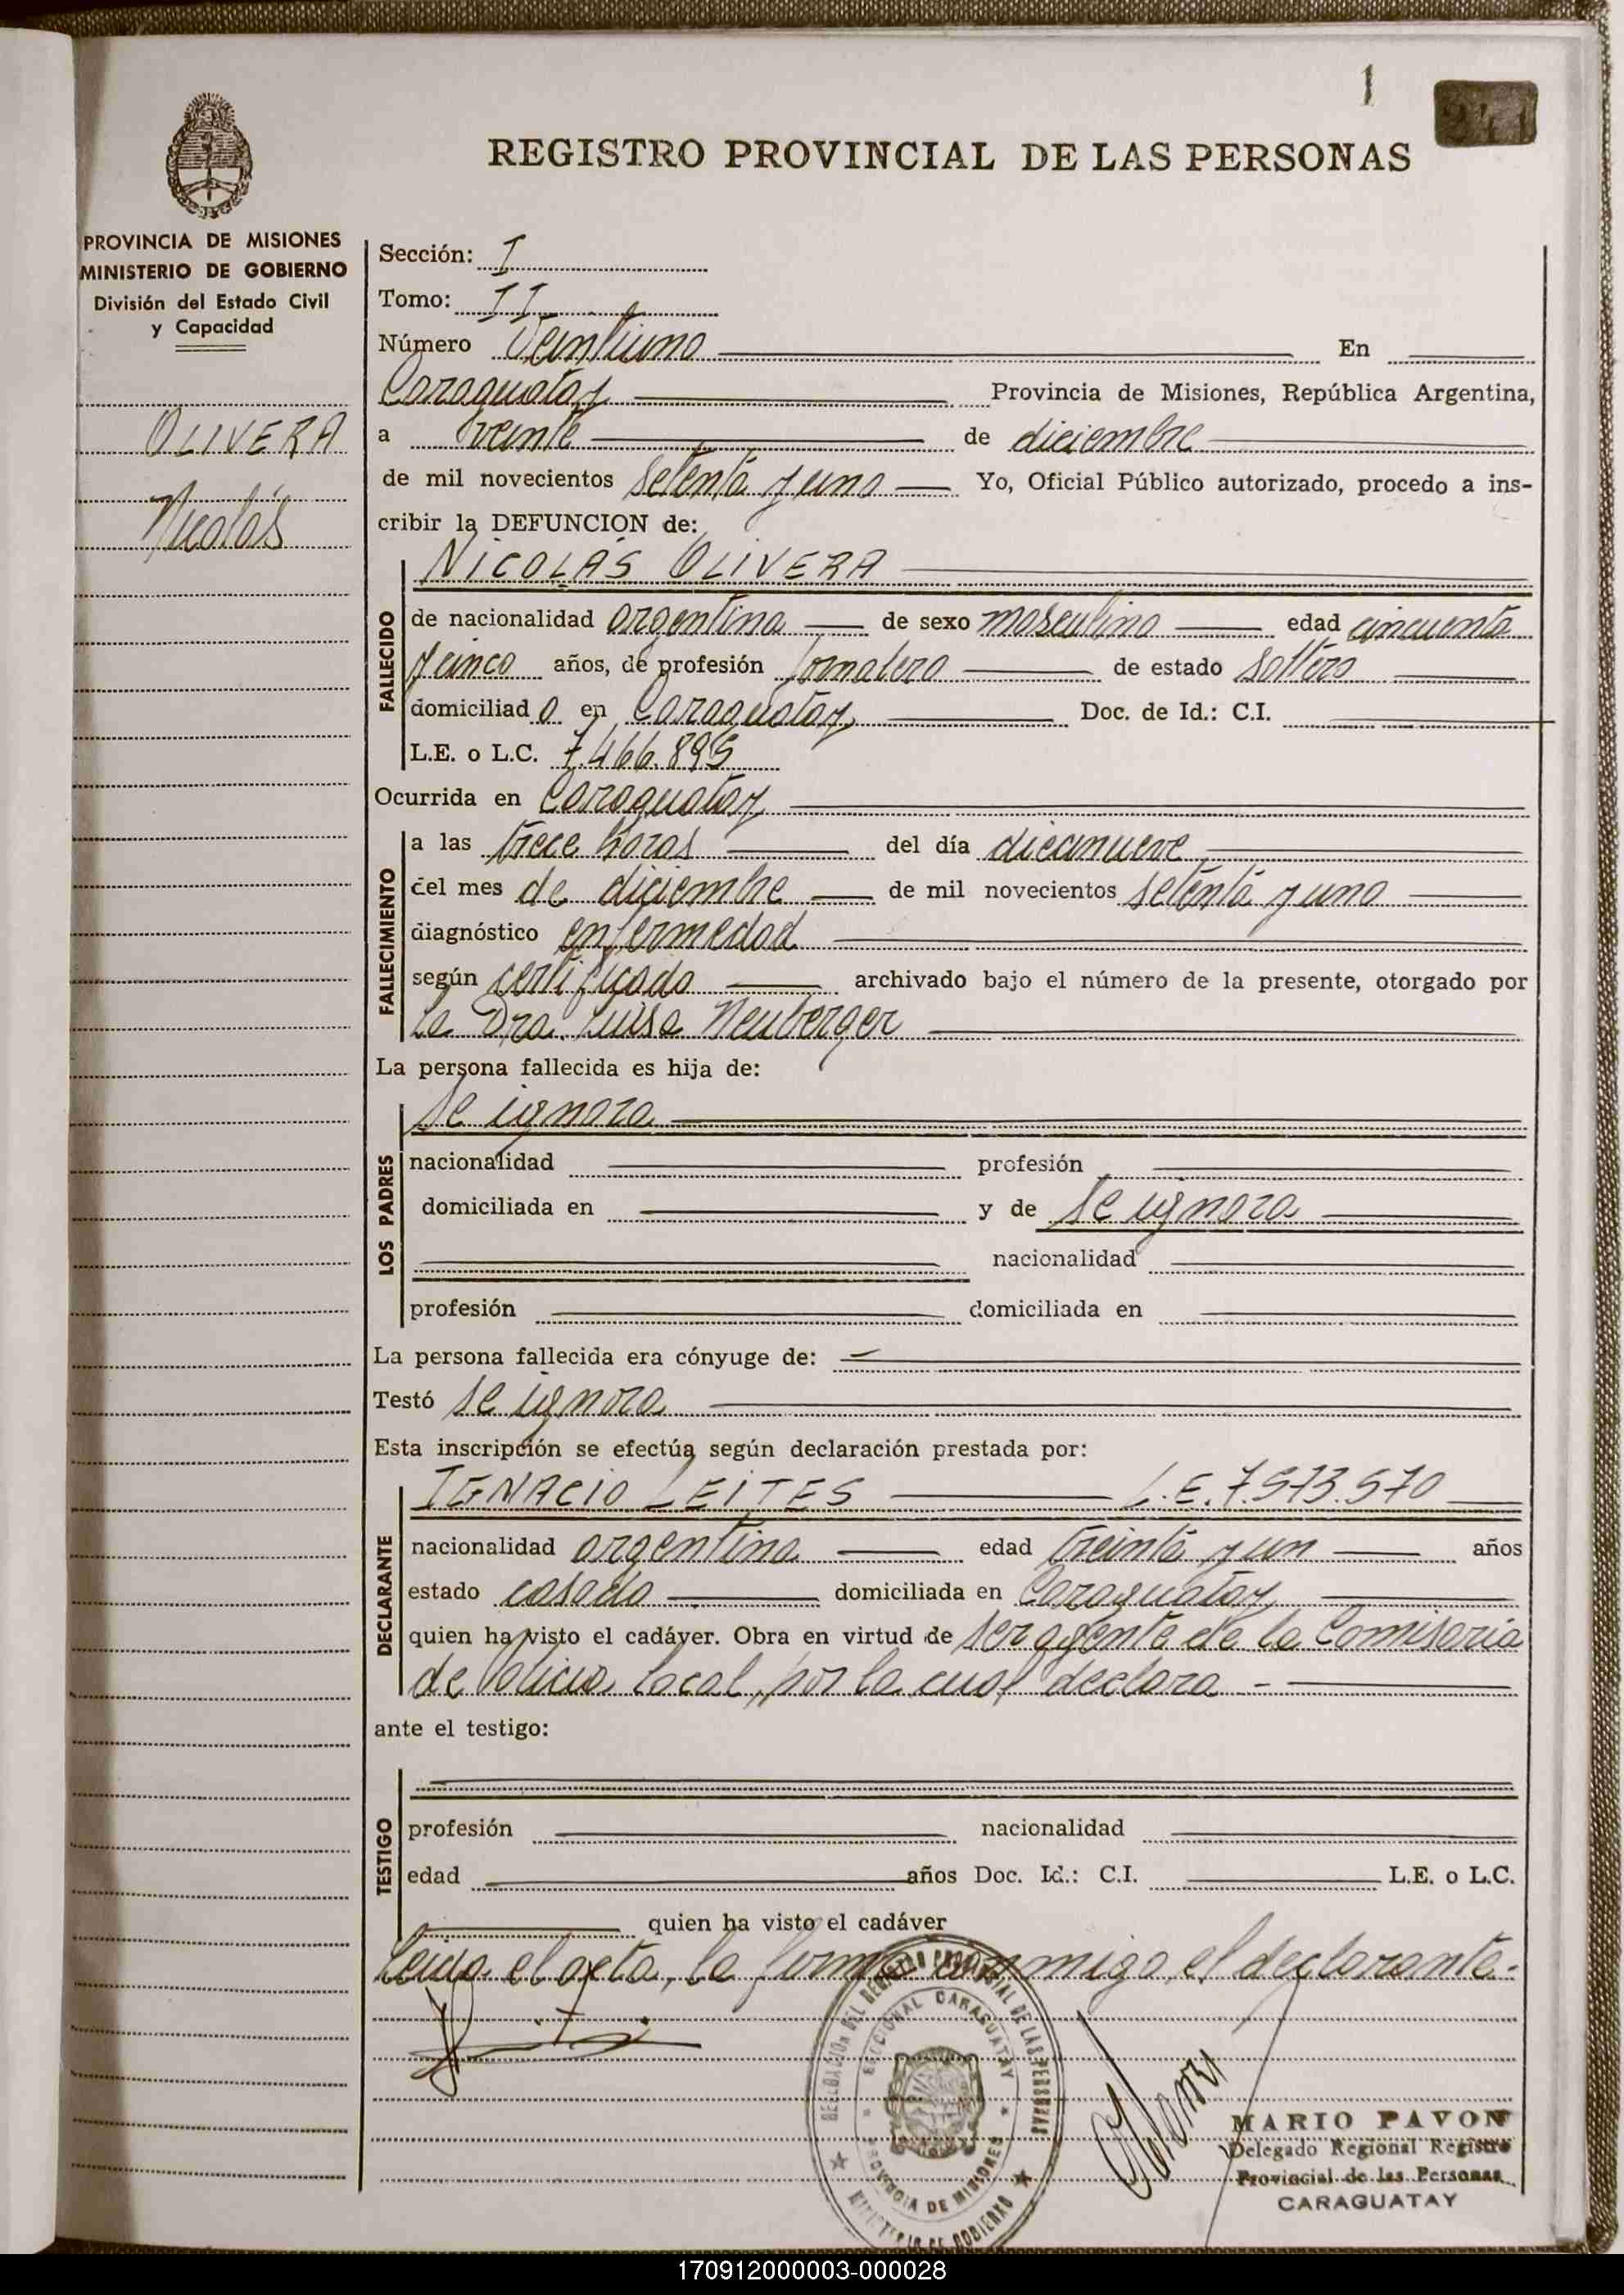 1
REGISTRO PROVINCIAL DE LAS PERSONAS
PROVINCIA DE MISIONES
MINISTERIO DE GOBIERNO
División del Estado Civil
y Capacidad
OLIVERA
Nicolás
Sección: I
Tomo: II
Número Veintiuno En
Caraguatay Provincia de Misiones, República Argentina,
a veinte de diciembre
de mil novecientos setenta y uno Yo, Oficial Público autorizado, procedo a ins-
cribir la DEFUNCION de:
NICOLÁS OLIVERA
FALLECIDO
de nacionalidad argentina de sexo masculino edad cincuenta
y cinco años, de profesión Jornalero de estado soltero
domiciliado en Caraguatay Doc. de Id.: C.I.
L.E. o L.C. 7.466.895
Ocurrida en Caraguatay
FALLECIMIENTO
a las trece horas del día diecinueve
del mes de diciembre de mil novecientos setenta y uno
diagnóstico enfermedad
según certificado archivado bajo el número de la presente, otorgado por
la Dra. Luisa Neuberger
La persona fallecida es hija de:
LOS PADRES
se ignora
nacionalidad profesión
domiciliada en y de se ignora
nacionalidad
profesión domiciliada en
La persona fallecida era cónyuge de:
Testó se ignora
Esta inscripción se efectúa según declaración prestada por:
DECLARANTE
IGNACIO LEITES L.E. 7.573.570
nacionalidad argentina edad treinta y un años
estado casado domiciliada en Caraguatay
quien ha visto el cadáver. Obra en virtud de ser agente de la Comisaria
de Policia local, por la cual declara -
ante el testigo:
TESTIGO
profesión nacionalidad
edad años Doc. Id.: C.I. L.E. o L.C.
quien ha visto el cadáver
Leida el acta, la firma conmigo, el declarante.-
DELEGACION DEL REGISTRO PROVINCIAL DE LAS PERSONAS
SECCIONAL CARAGUATAY
PROVINCIA DE MISIONES
MINISTERIO DE GOBIERNO
MARIO PAVON
Delegado Regional Registro
Provincial de las Personas
CARAGUATAY
170912000003-000028